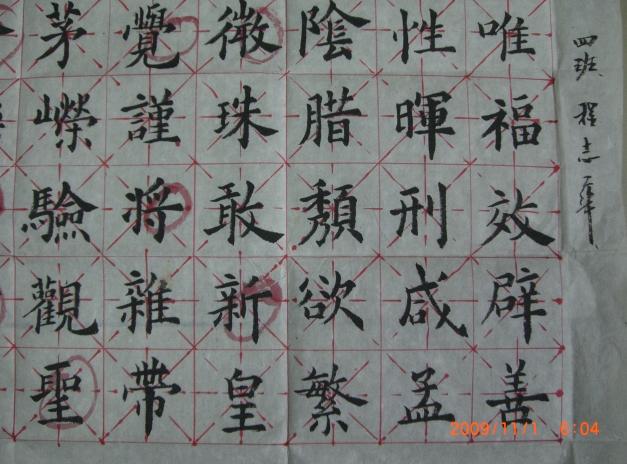 四班 程志军
唯福效辟善
性暉刑咸孟
陰腊頽欲繁
微珠敢新皇
覺謹将雜帶
茅嶸驗觀聖
2009/11/1 6:04